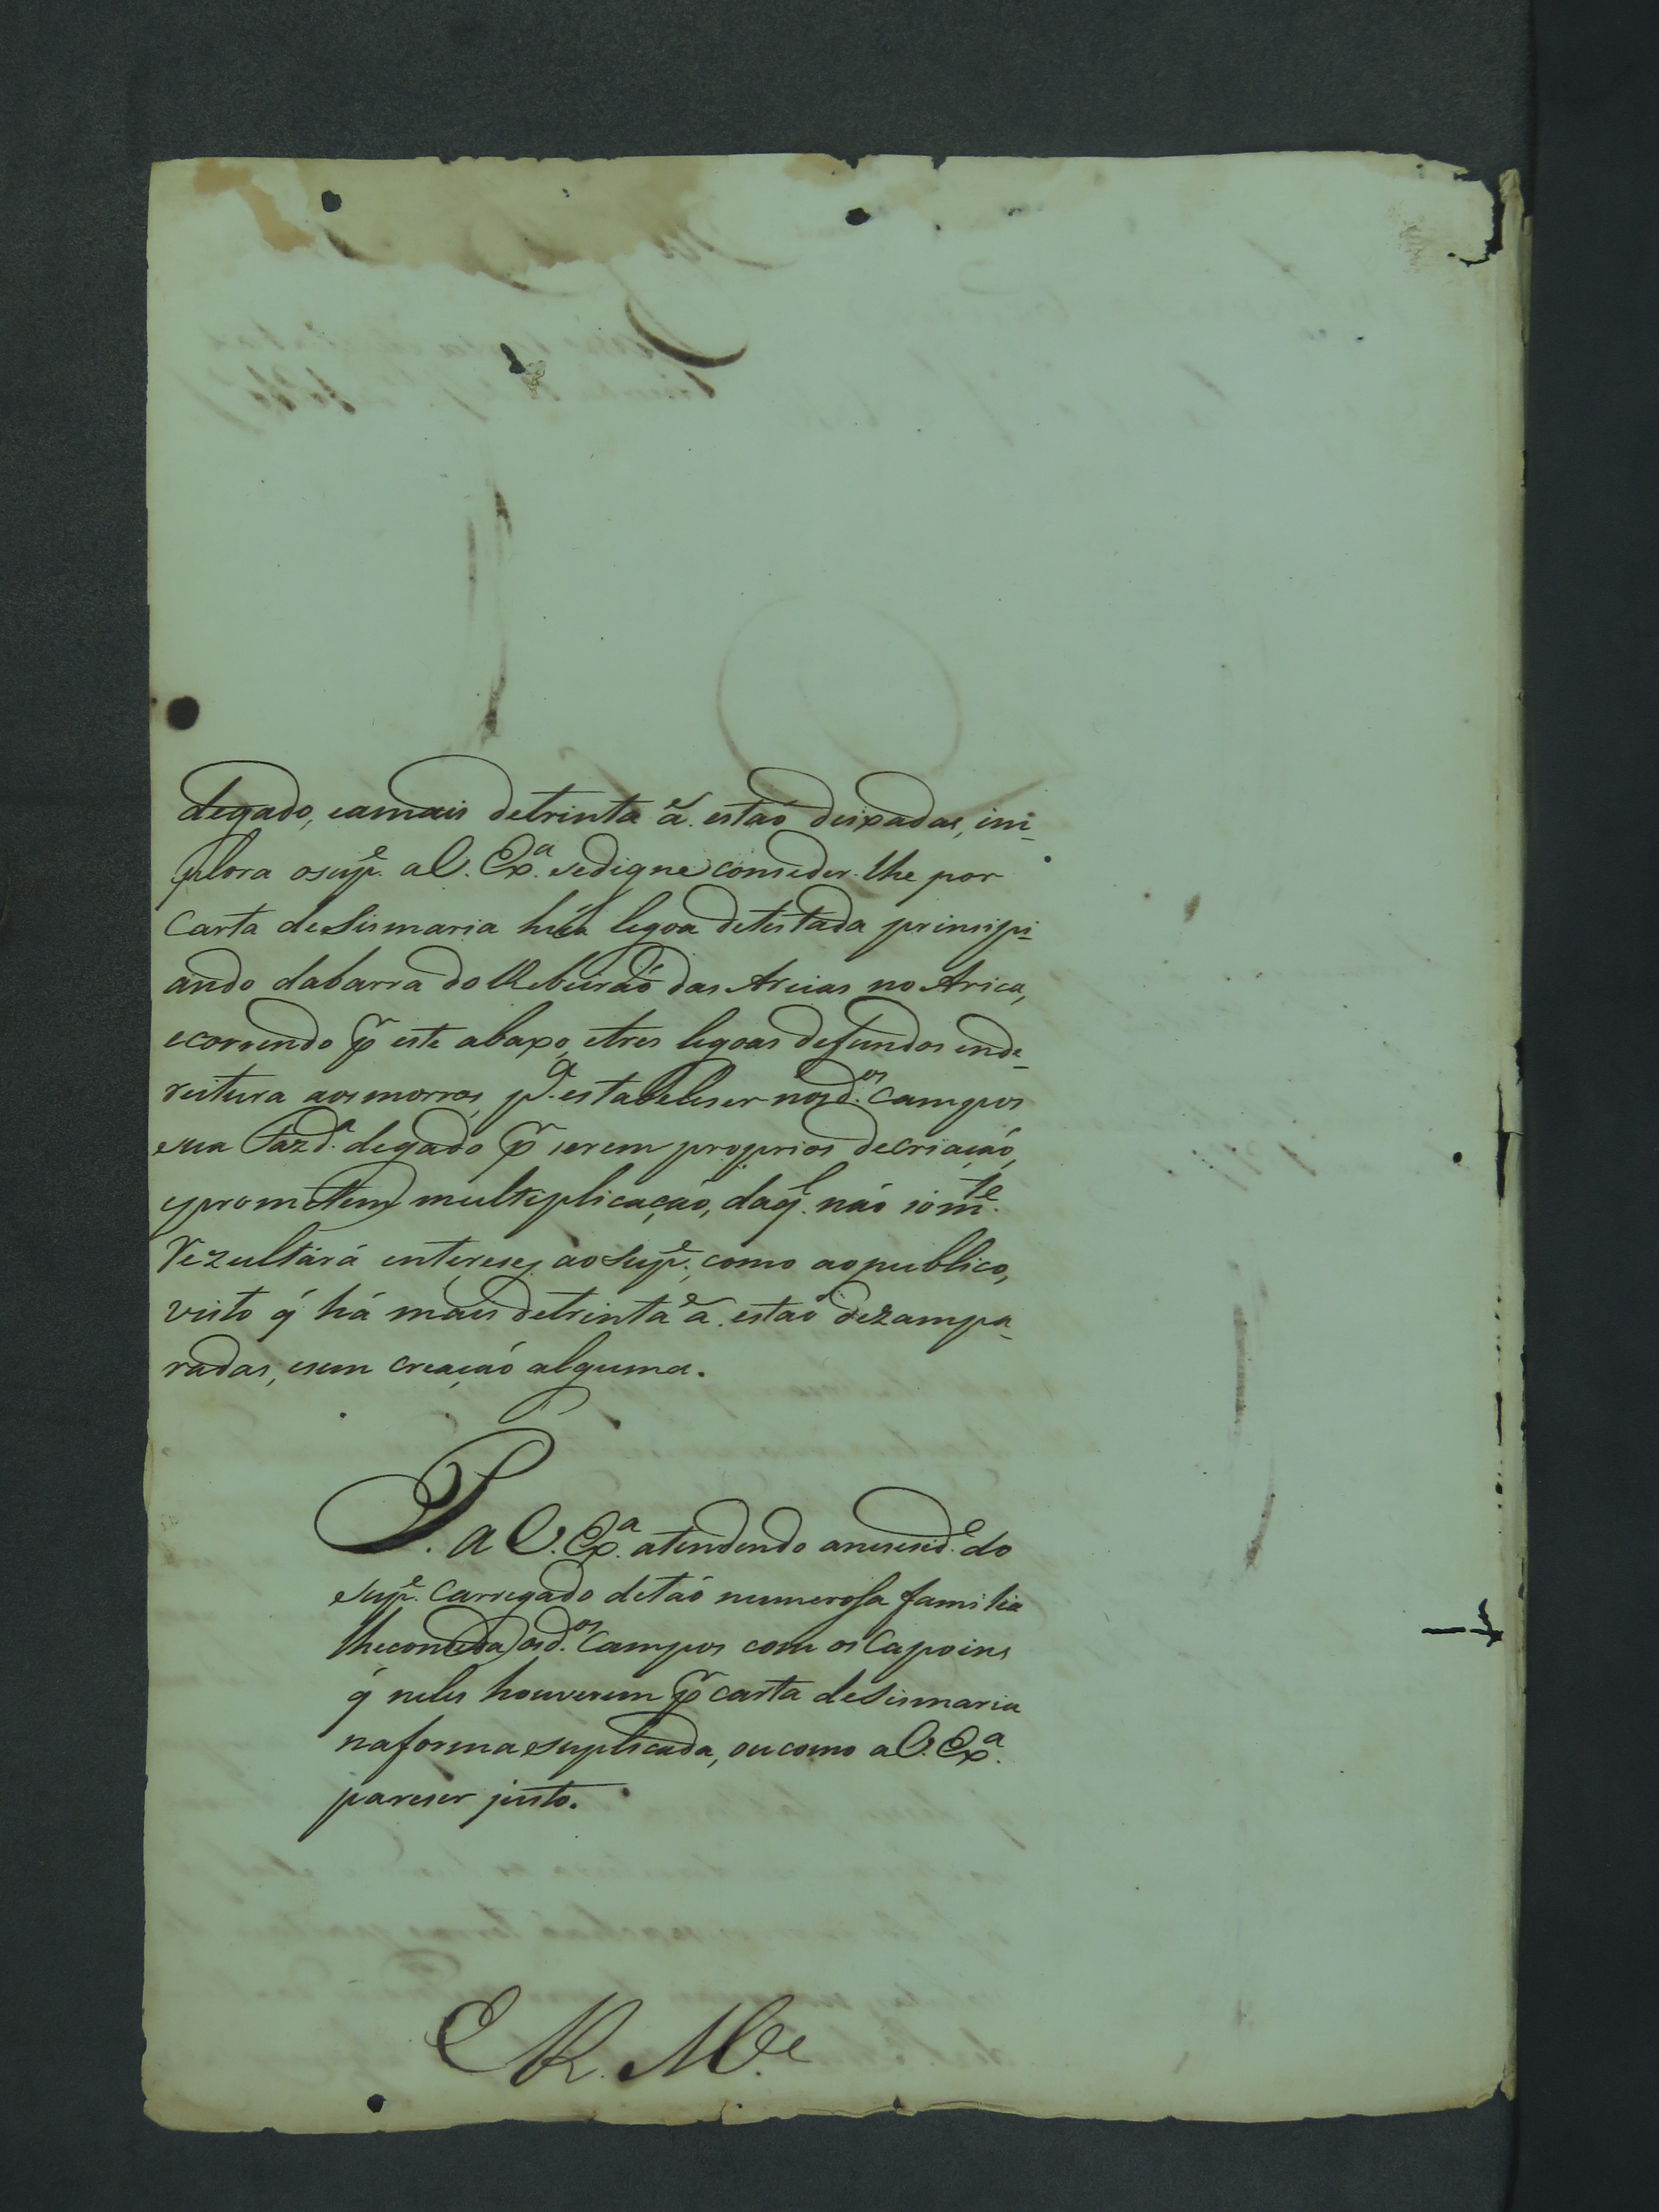 degado, eamais detrinta ãˢ. estaõ deixadas, im-
plora osupᵉ. aV. Exᵃ. sedigne conseder-lhe por
Carta deSismaria húa legoa detestada prinsipi-
ando dabarra do Rebeiraõ das Areias no Arica,
ecorrendo pʳ este abaxo, etres legoas defundos ende-
reitura aosmorros, pᵃ. estabeleser nosdᵒˢ. Campos
sua Fazdᵃ. degado pʳ serem proprios decriaçaõ,
eprometem multeplicaçaõ, daqˡ. naõ sómᵗᵉ.
Rezultará entereses aosupᵉ., como aopublico,
visto q́ há mais detrinta ãˢ. estaõ dezampa-
radas, esem creaçaõ alguma.
P. a V. Exᵃ. atendendo anesesidᵉ. do
supᵉ. Carregado detaõ numeroſa familia
lheconseda osdᵒˢ. Campos com os Capoins
q́ neles houverem pʳ carta deSismaria
naforma suplicada, oucomo aV. Exᵃ.
pareser justo.
E R. Mᶜᵉ